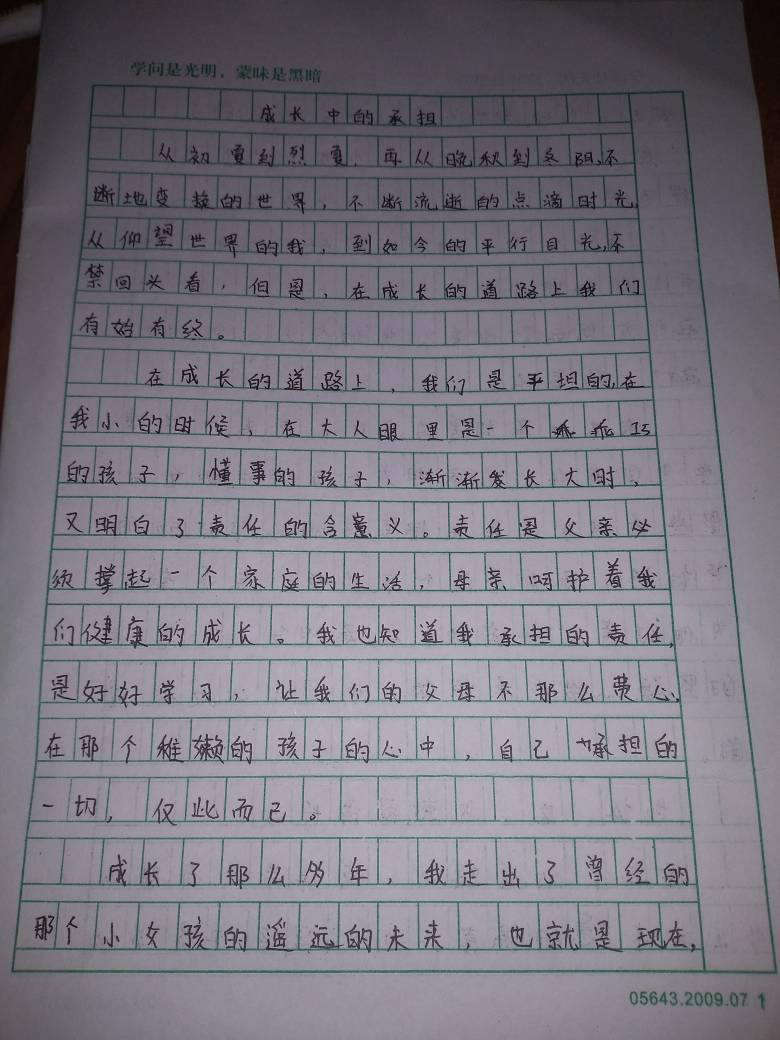 学问是光明，蒙昧是黑暗
成长中的承担
从初夏到烈夏，再从晚秋到冬阳，不
断地变换的世界，不断流逝的点滴时光，
从仰望世界的我，到如今的平行目光，不
禁回头看，但是，在成长的道路上我们
有始有终。
在成长的道路上，我们是平坦的，在
我小的时候，在大人眼里是一个乖乖巧
的孩子，懂事的孩子，渐渐发长大时，
又明白了责任的含意义。责任是父亲必
须撑起一个家庭的生活，母亲呵护着我
们健康的成长。我也知道我承担的责任，
是好好学习，让我们的父母不那么费心，
在那个稚嫩的孩子的心中，自己承担的
一切，仅此而已。
成长了那么多年，我走出了曾经的
那个小女孩的遥远的未来，也就是现在，
05643.2009.07 1